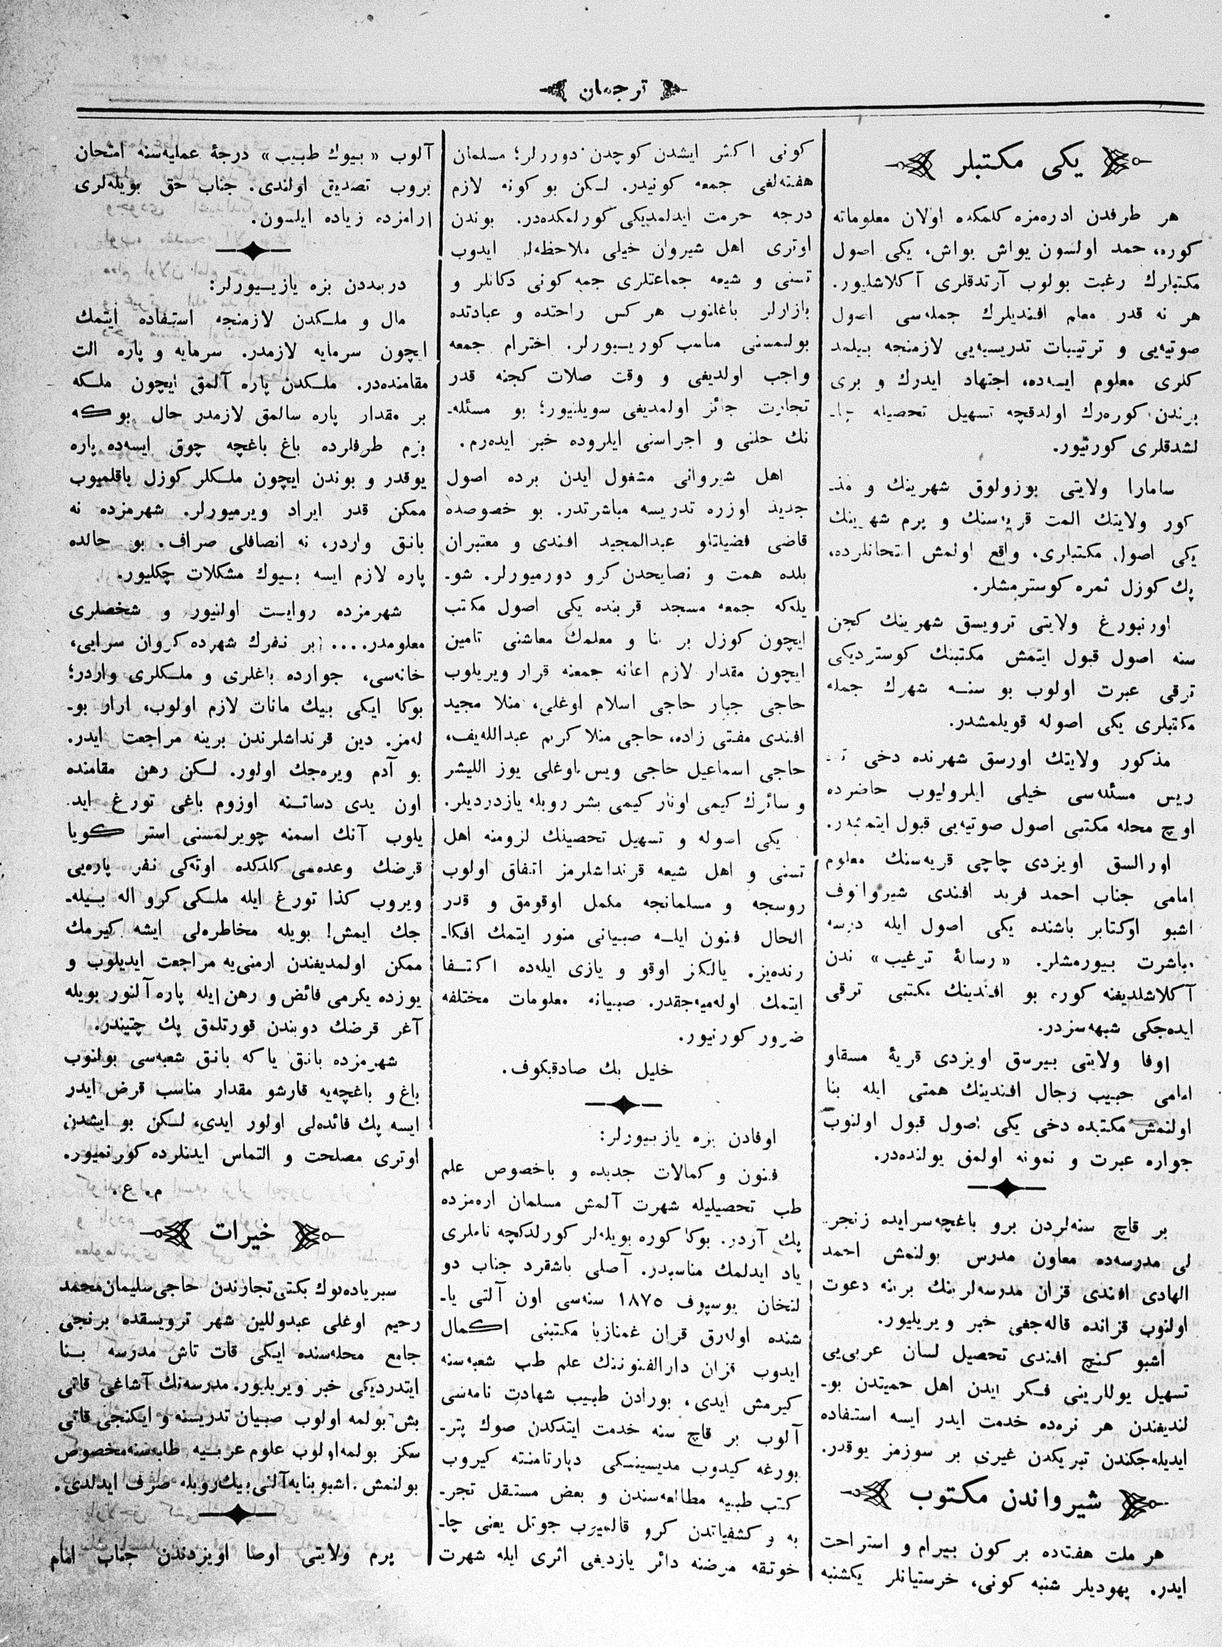 ترجمان
يكى مكتبلر
هر طرفدن ادره‌مزه كلمكده اولان معلوماته
كوره، حمد اولسون يواش بواش، يكى اصول
مكتبلرك رغبت بولوب آرتدقلرى آكلاشليور.
هر نه قدر معلم افنديلرك جمله‌سى اصول
صوتيه‌يى و ترتيبات تدريسيه‌يى لازمنجه بيلمد
كلرى معلوم ايسه‌ده، اجتهاد ايدرك و برى
برندن كوره‌رك اولدقچه تسهيل تحصيله چا‍ـ
لشدقلرى كورنيور.
سامارا ولايتى بوزولوق شهرينك و مذ‍ـ
كور ولايتك المت قريه‌سنك و پرم شهرينك
يكى اصول مكتبلرى، واقع اولمش امتحانلرده،
پك كوزل ثمره كوسترمشلر.
اورنبورغ ولايتى ترويسق شهرينك كچن
سنه اصول قبول ايتمش مكتبنك كوسترديكى
ترقى عبرت اولوب بو سنــه شهرك جمله
مكتبلرى يكى اصوله قويلمشدر.
مذكور ولايتك اورسق شهرنده دخى تد‍ـ
ريس مسئله‌سى خيلى ايلروليوب حاضرده
اوچ محله مكتبى اصول صوتيه‌يى قبول ايتمشدر.
اورالسق اويزدى چاچى قريه‌سنك معلوم
امامى جناب احمد فريد افندى شيروانوف
اشبو اوكتابر باشنده يكى اصول ايله درسه
مباشرت بيورمشلر. «رسالۀ ترغيب» ندن
آكلاشلديغنه كوره بو افندينك مكتبى ترقى
ايده‌جكى شبهه‌سزدر.
اوفا ولايتى بيرسق اويزدى قريۀ مسقاو
امامى حبيب رجال افندينك همتى ايله بنا
اولنمش مكتبده دخى يكى اصول قبول اولنوب
جواره عبرت و نمونه اولمق يولنده‌در.
بر قاچ سنه‌لردن برو باغچه‌سرايده زنجر‍ـ
لى مدرسه‌ده معاون مدرس بولنمش احمد
الهادى افندى قزان مدرسه‌لرينك برينه دعوت
اولنوب قزانده قاله‌جغى خبر ويريليور.
اشبو كنج افندى تحصيل لسان عربى‌يى
تسهيل يوللرينى فــكر ايدن اهل حميتدن بو‍ـ
لنديغندن هر نره‌ده خدمت ايدر ايسه استفاده
ايديله‌جكندن تبريكدن غيرى بر سوزمز يوقدر.
شيرواندن مكتوب
هر ملت هفته‌ده بر كون بيرام و استراحت
ايدر. يهوديلر شنبه كونى، خرستيانلر يكشنبه
كونى اكثر ايشدن كوچدن دوررلر؛ مسلمان
هفته‌لغى جمعه كونيدر. لــكن بو كونه لازم
درجه حرمت ايدلمديكى كورلمكده‌در. بوندن
اوترى اهل شيروان خيلى ملاحظه‌لر ايدوب
تسنى و شيعه جماعتلرى جمعه كونى دكانلر و
بازارلر باغلنوب هر كس راحتده و عبادتده
بولنمسنى مناسب كوريــيورلر. احترام جمعه
واجب اولديغى و وقت صلات كچنه قدر
تجارت جائز اولمديغى سويلنيور؛ بو مسئله‍ـ
نك حلنى و اجراسنى ايلروده خبر ايده‌رم.
اهل شيروانى مشغول ايدن برده اصول
جديد اوزره تدريسه مباشرتدر. بو خصوصده
قاضى فضيلتلو عبدالمجيد افندى و معتبران
بلده همت و نصايحدن كرو دورميورلر. شو‍ـ
يله‌كه جمعه مسجد قربنده يكى اصول مكتب
ايچون كوزل بر بنا و معلمك معاشنى تامين
ايچون مقدار لازم اعانه جمعنه قرار ويريلوب
حاجى جبار حاجى اسلام اوغلى، منلا مجيد
افندى مفتى زاده، حاجى منلا كريم عبدالله‌يف،
حاجى اسماعيل حاجى ويس اوغلى يوز الليشر
و سائرك كيمى اونار كيمى بشر روبله يازدرديلر.
يكى اصوله و تسهيل تحصيلك لزومنه اهل
تسنى و اهل شيعه قرنداشلرمز اتفاق اولوب
روسجه و مسلمانجه مكمل اوقومق و قدر
الحال فنون ايلــه صبيانى منور ايتمك افكا‍ـ
رنده‌يز. يالكز اوقو و يازى ايله‌ده اكتــفا
ايتمك اوله‌ميه‌جقدر. صبيانه معلومات مختلفه
ضرور كورنيور.
خليل بك صادقبكوف.
اوفادن بزه يازييورلر:
فنون و كمالات جديده و باخصوص علم
طب تحصيليله شهرت آلمش مسلمان اره‌مزده
پك آزدر. بوكا كوره بويله‌لر كورلدكچه ناملرى
ياد ايدلمك مناسبدر. آصلى باشقرد جناب دو
لتخان يوسپوف ١٨٧٥ سنه‌سى اون آلتى يا‍ـ
شنده اوله‌رق قزان غمنازيا مكتبنى اكمال
ايدوب قزان دارالفنوننك علم طب شعبه‌سنه
كيرمش ايدى، بورادن طبيب شهادت نامه‌سى
آلوب بر قاچ سنه خدمت ايتدكدن صوك پتر‍ـ
بورغه كيدوب مديسينسكى دپارتامنته كيروب
كتب طبيه مطالعه‌سندن و بعض مستقل تجر‍ـ
به و كشفياتدن كرو قالميوب جوتل يعنى چا‍ـ
خوتقه مرضنه دائر يازديغى اثرى ايله شهرت
آلوب «بيوك طبيب» درجۀ عمليه‌سنه امتحان
بروب تصديق اولندى. جناب حق بويله‌لرى
ارامزده زياده ايلسون.
دربنددن بزه يازيــيورلر:
مال و ملــكدن لازمنجه استفاده ايتمك
ايچون سرمايه لازمدر. سرمايه و پاره الت
مقامنده‌در. ملــكدن پاره آلمق ايچون ملــكه
بر مقدار پاره سالمق لازمدر حال بوكه
بزم طرفلرده باغ باغچه چوق ايسه‌ده پاره
يوقدر و بوندن ايچون ملــكلر كوزل باقلميوب
ممكن قدر ايراد ويرميورلر. شهرمزده نه
بانق واردر، نه انصافلى صراف. بو حالده
پاره لازم ايسه بيوك مشكلات چكليور.
شهرمزده روايت اولنيور و شخصلرى
معلومدر.... بر نفرك شهرده كروان سرايى،
خانه‌سى، جوارده باغلرى و ملــكلرى واردر؛
بوكا ايكى بيك مانات لازم اولوب، ارار بو‍ـ
له‌مز. دين قرنداشلرندن برينه مراجعت ايدر.
بو آدم ويره‌جك اولور. لــكن رهن مقامنده
اون يدى دساتــنه اوزوم باغى تورغ ايد‍ـ
يلوب آنك اسمنه چويرلمسنى استر كويا
قرضك وعده‌سى كلدكده اوته‌كى نفر پاره‌يى
ويروب كذا تورغ ايله ملــكى كرو اله بيله‍ـ
جك ايمش! بويله مخاطره‌لى ايشه كيرمك
ممكن اولمديغندن ارمنى‌يه مراجعت ايديلوب و
يوزده يكرمى فائض و رهن ايله پاره آلنور بويله
آغر قرضك دوبندن قورتلمق پك چتيندر.
شهرمزده بانق ياكه بانق شعبه‌سى بولنوب
باغ و باغچه‌يه قارشو مقدار مناسب قرض ايدر
ايسه پك فائده‌لى اولور ايدى، لــكن بو ايشدن
اوترى مصلحت و التماس ايدنلرده كورنميور.
م. ع.
خيرات
سبرياده‌نوك بكتى تجارندن حاجى سليمان محمد
رحيم اوغلى عبدوللين شهر ترويسقده برنجى
جامع محله‌سنده ايــكى قات تاش مدرسه بــنا
ايتدرديكى خبر ويريليور. مدرسه‌نك آشاغى قاتى
بش بولمه اولوب صبيان تدريسنه و ايكنجى قاتى
سكز بولمه اولوب علوم عربــيه طلبه‌سنه مخصوص
بولنمش. اشبو بنايه آلتى بيك روبله صرف ايدلدى.
پرم ولايتى اوصا اويزدندن جناب امام